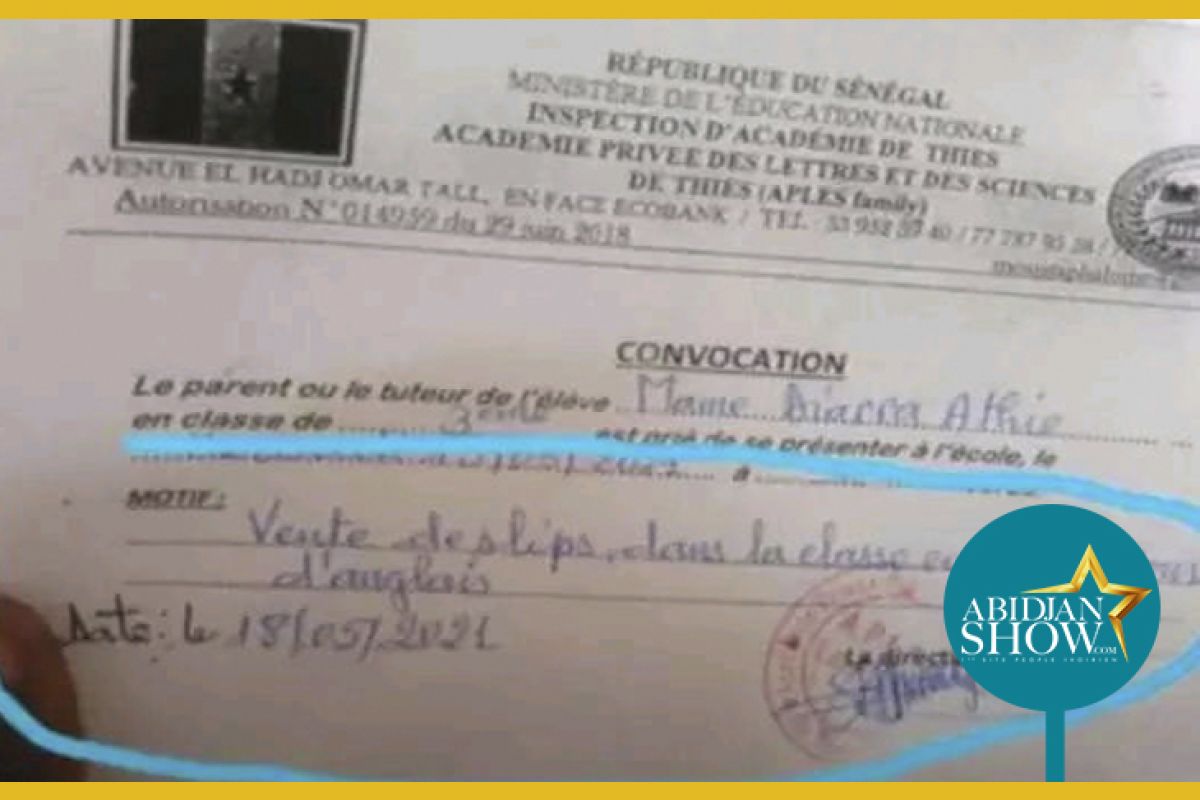 RÉPUBLIQUE DU SÉNÉGAL
MINISTÈRE DE L'ÉDUCATION NATIONALE
INSPECTION D'ACADÉMIE DE THIES
ACADEMIE PRIVEE DES LETTRES ET DES SCIENCES
DE THIÈS (APLES family)
AVENUE EL HADJ OMAR TALL, EN FACE ECOBANK / TEL 33 952 39 40 / 77 787 95 38 /
Autorisation N°014959 du 29 juin 2018
CONVOCATION
Le parent ou le tuteur de l'élève Mame Diarra Athie
en classe de 3eme est prié de se présenter à l'école, le
à
MOTIF:
Vente de slips dans la classe
d'anglais
Date: le 18/05/2021
La
ABIDJAN
SHOW.COM
1ER SITE PEOPLE IVOIRIEN